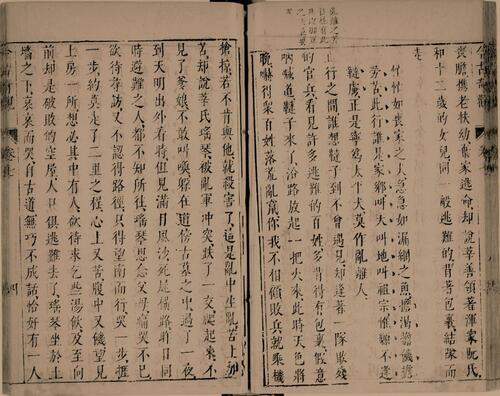 喪膽攜老扶幼棄家逃命却說莘善領着渾家阮氏
和十二歲的女兒同一般逃難的背着包裹結隊而
走
忙忙如喪家之犬急急如漏網之魚擔渴擔饑擔
勞苦此行誰是家鄉叫天叫地叫祖宗惟願不逢
韃虜正是寧爲太平犬莫作亂離人
正行之間誰想韃子到不曾遇見却逢着一隊敗殘
的官兵看見許多逃難的百姓多背得有包裹假意
吶喊道韃子來了沿路放起一把火來此時天色將
晚嚇得衆百姓落荒亂竄你我不相顧敗兵就乘機
搶掠若不肯與他就殺害了這是亂中生亂苦上加
苦却說莘氏瑤琴被亂軍衝突跌了一交爬起來不
見了爹娘不敢叫喚躲在道傍古墓之中過了一夜
到天明出外看時但見滿目風沙死屍橫路昨日同
時避難之人都不知所往瑤琴思念父母痛哭不已
欲待尋訪又不認得路徑只得望南而行哭一步捱
一步約莫走了二里之程心上又苦腹中又饑望見
土房一所想必其中有人欲待求乞些湯飲及至向
前却是破敗的空屋人口俱逃難去了瑤琴坐於土
墻之下哀哀而哭自古道無巧不成話恰好有一人
今古奇觀
卷七
四